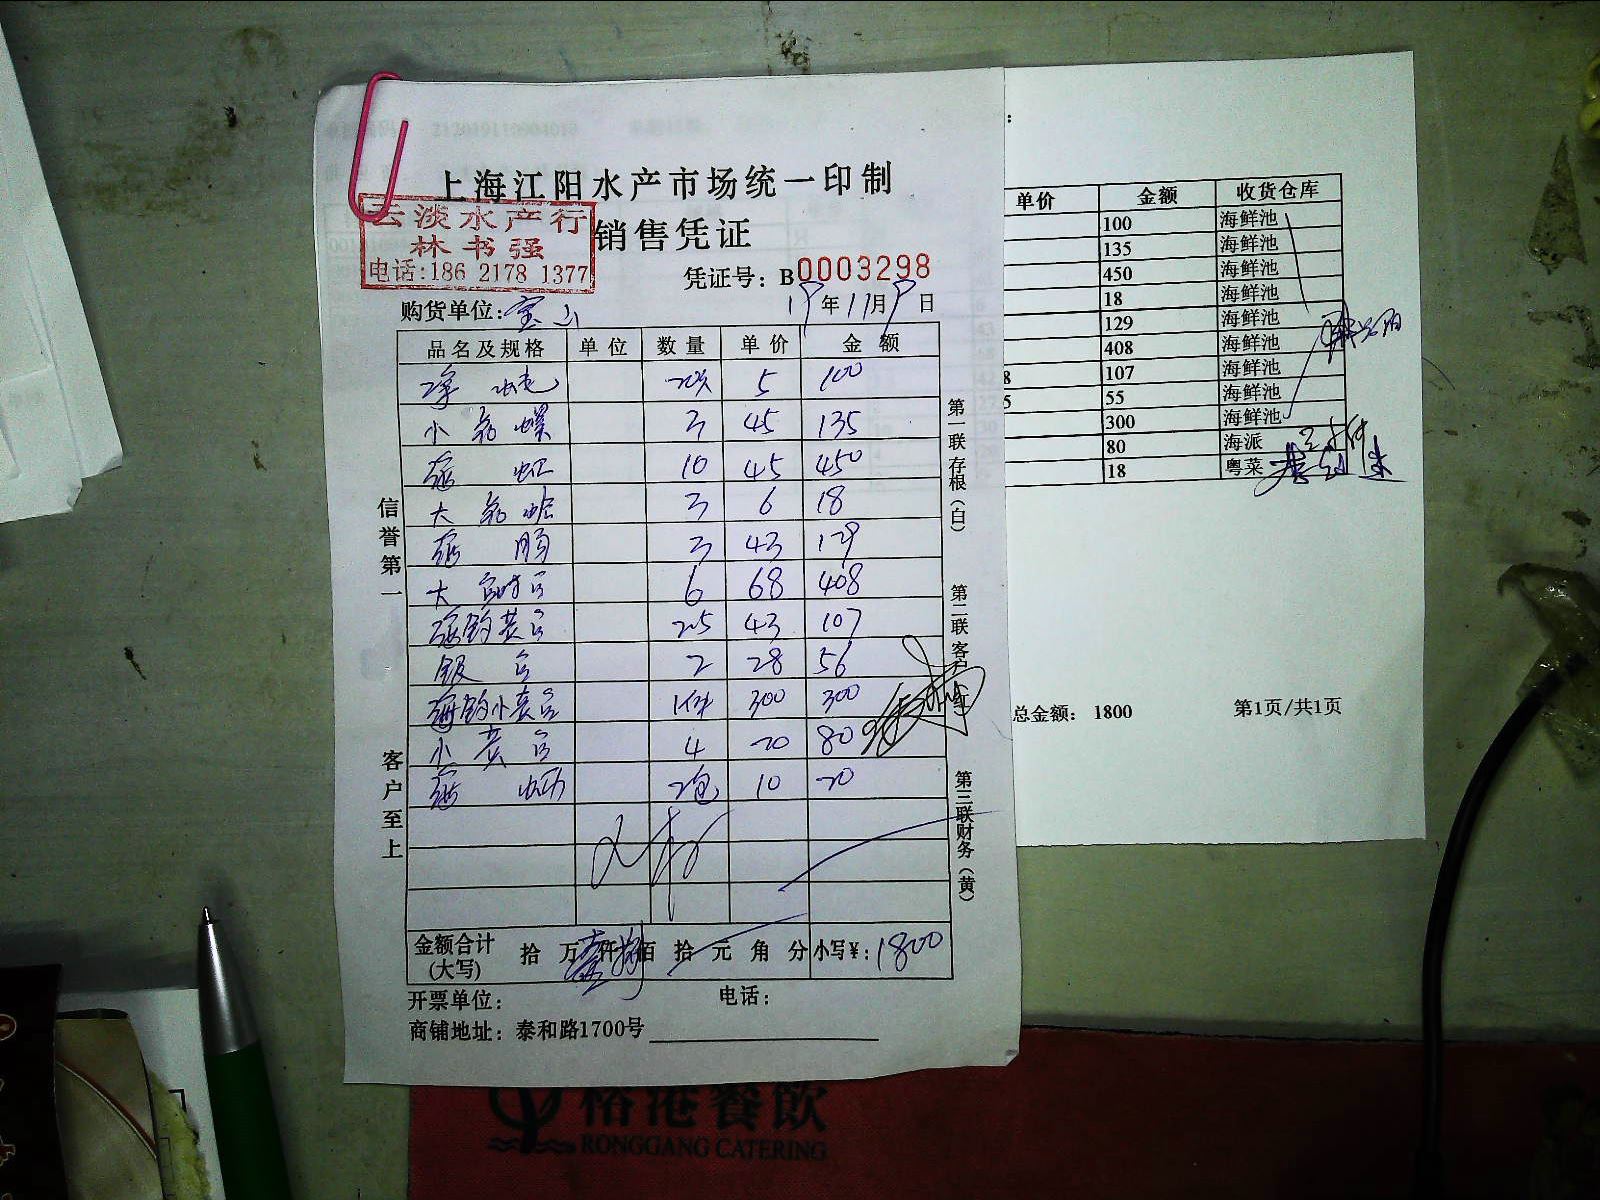 上海江阳水产市场统一印制
云淡水产行
林书强
电话:186 2178 1377
销售凭证
凭证号: B0003298
购货单位: 宝山
19年11月9日
品名及规格 单位 数量 单价 金额
5 100
小 螺 3 45 135
10 45 450
大 3 6 18
3 43 129
大 6 68 408
2.5 43 107
银 2 28 56
1件 300 300
小黄 4 20 80
2包 10 20
金额合计(大写) 拾 万 仟 佰 拾 元 角 分 小写¥: 1800
开票单位: 电话:
商铺地址: 泰和路1700号
信誉第一
客户至上
第一联 存根(白)
第二联 客户(红)
第三联 财务(黄)
单价 金额 收货仓库
100 海鲜池
135 海鲜池
450 海鲜池
18 海鲜池
129 海鲜池
408 海鲜池
8 107 海鲜池
5 55 海鲜池
300 海鲜池
80 海派
18 粤菜
总金额: 1800 第1页/共1页
212019110904019
港餐飲
RONGGANG CATERING